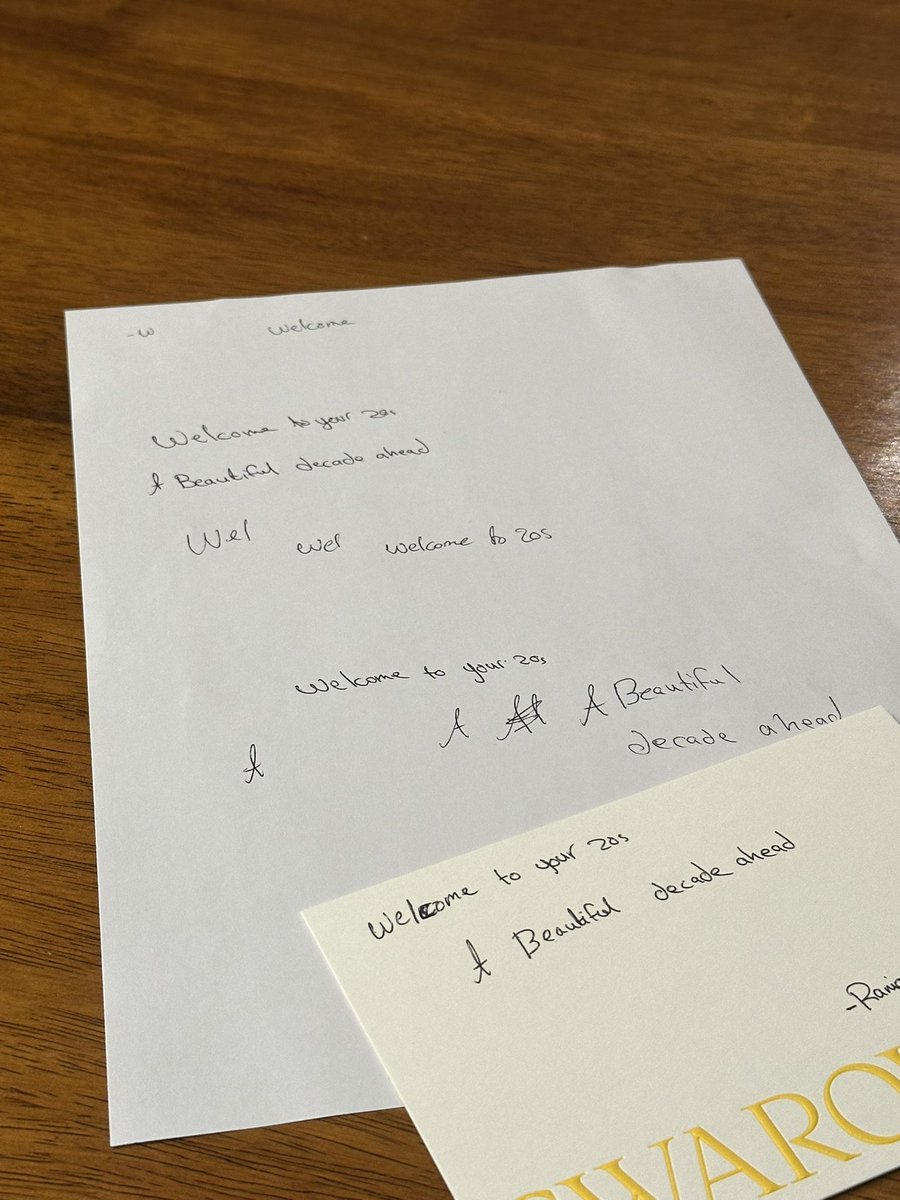 -w Welcome
Welcome to your 20s
A Beautiful decade ahead
Wel wel welcome to 20s
Welcome to your 20s
A A A Beautiful
decade ahead
Welcome to your 20s
A Beautiful decade ahead